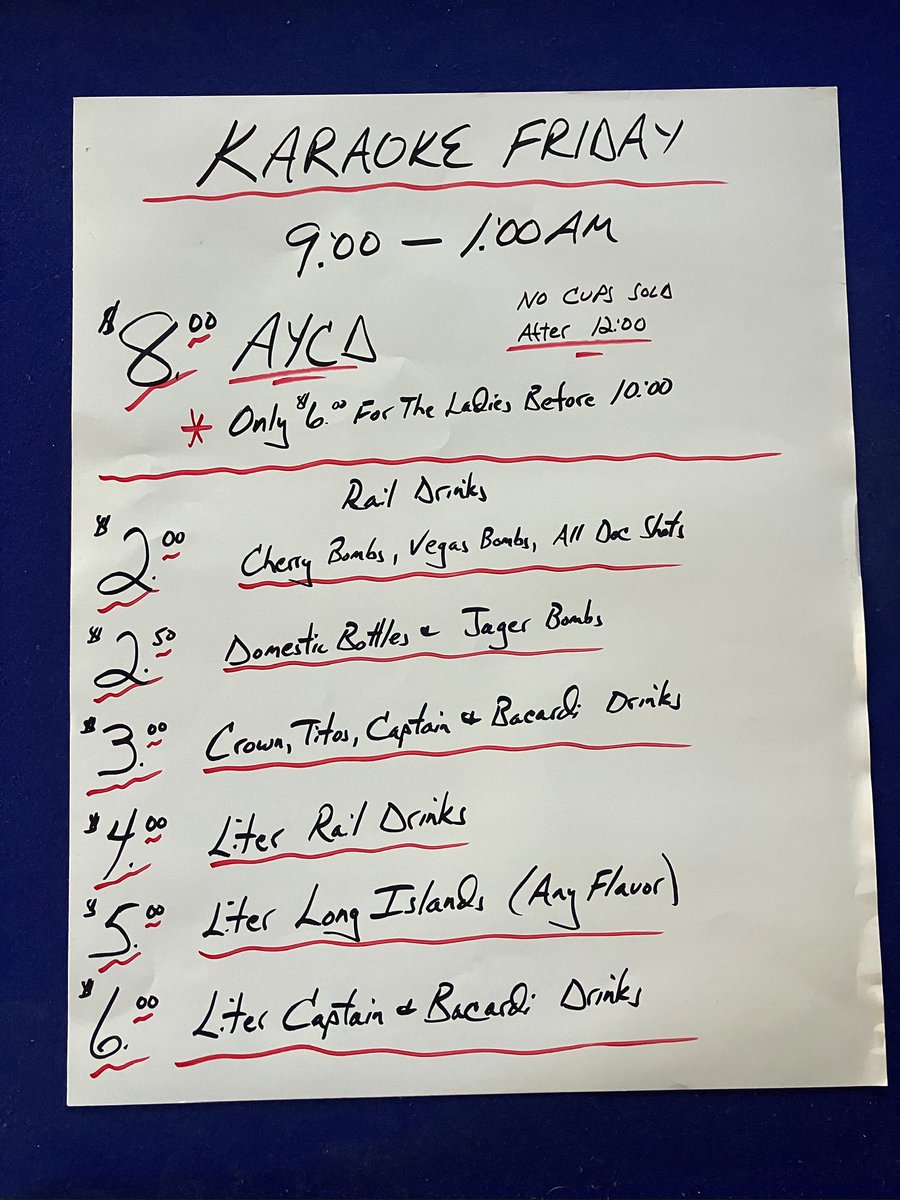 KARAOKE FRIDAY
9:00 — 1:00 AM
$8.00 AYCD
NO CUPS SOLD
After 12:00
* Only $6.00 For The Ladies Before 10:00
Rail Drinks
$2.00 Cherry Bombs, Vegas Bombs, All Doc Shots
$2.50 Domestic Bottles & Jager Bombs
$3.00 Crown, Titos, Captain & Bacardi Drinks
$4.00 Liter Rail Drinks
$5.00 Liter Long Islands (Any Flavor)
$6.00 Liter Captain & Bacardi Drinks